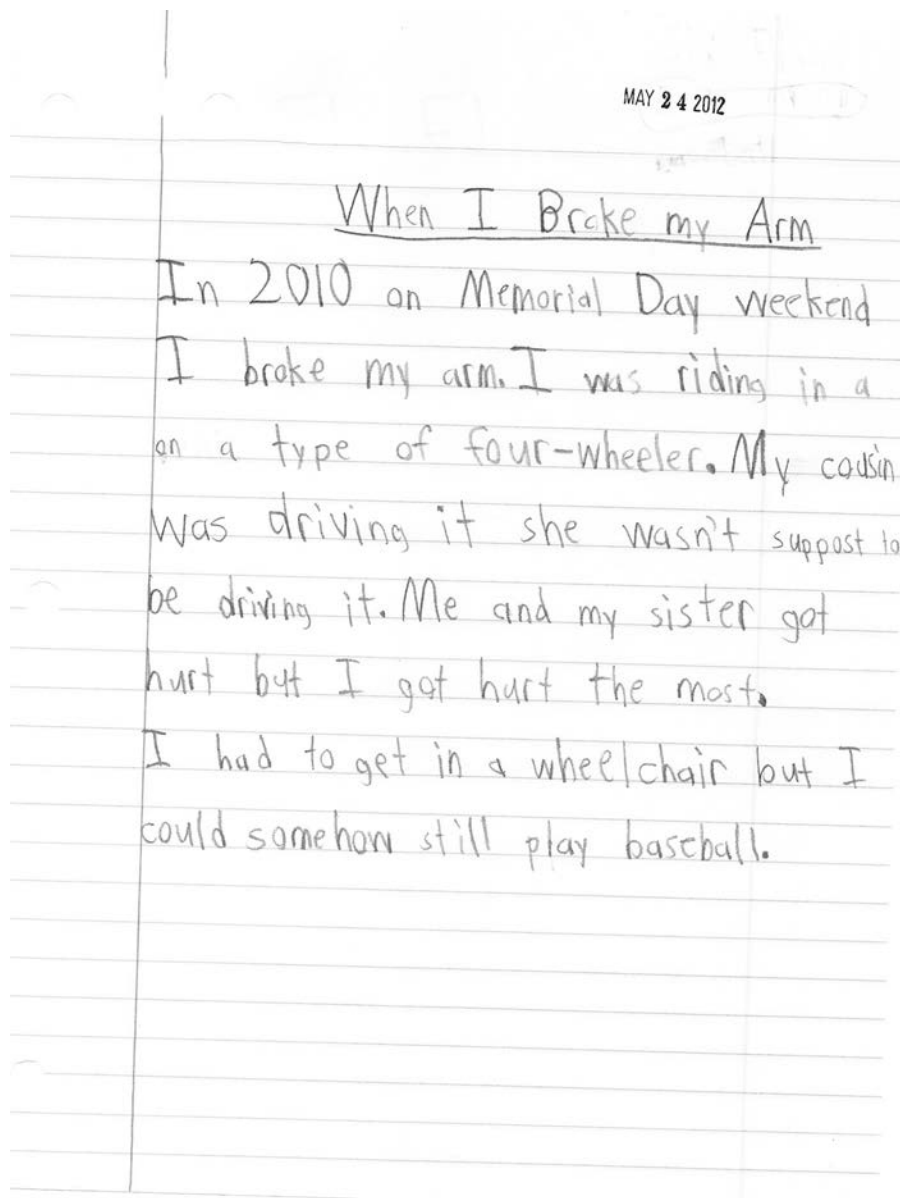 MAY 24 2012
When I Broke my Arm
In 2010 on Memorial Day weekend
I broke my arm. I was riding in a
on a type of four-wheeler. My cousin
was driving it she wasn't suppost to
be driving it. Me and my sister got
hurt but I got hurt the most.
I had to get in a wheelchair but I
could somehow still play baseball.